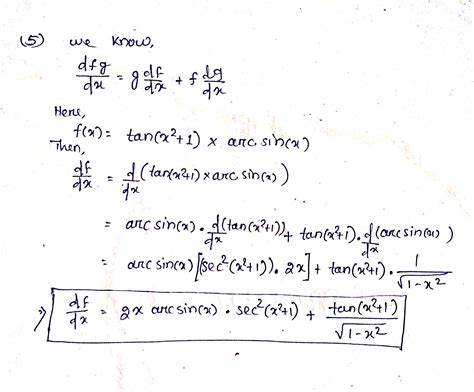 (5) we know,
dfg/dx = g df/dx + f dg/dx
Here,
f(x) = tan(x²+1) × arc sin(x)
Then,
df/dx = d/dx (tan(x²+1) × arc sin(x))
= arc sin(x) · d/dx (tan(x²+1)) + tan(x²+1) · d/dx (arc sin(x))
= arc sin(x) [(sec²(x²+1)) · 2x] + tan(x²+1) · 1/√(1-x²)
⇒ df/dx = 2x arc sin(x) · sec²(x²+1) + tan(x²+1)/√(1-x²)